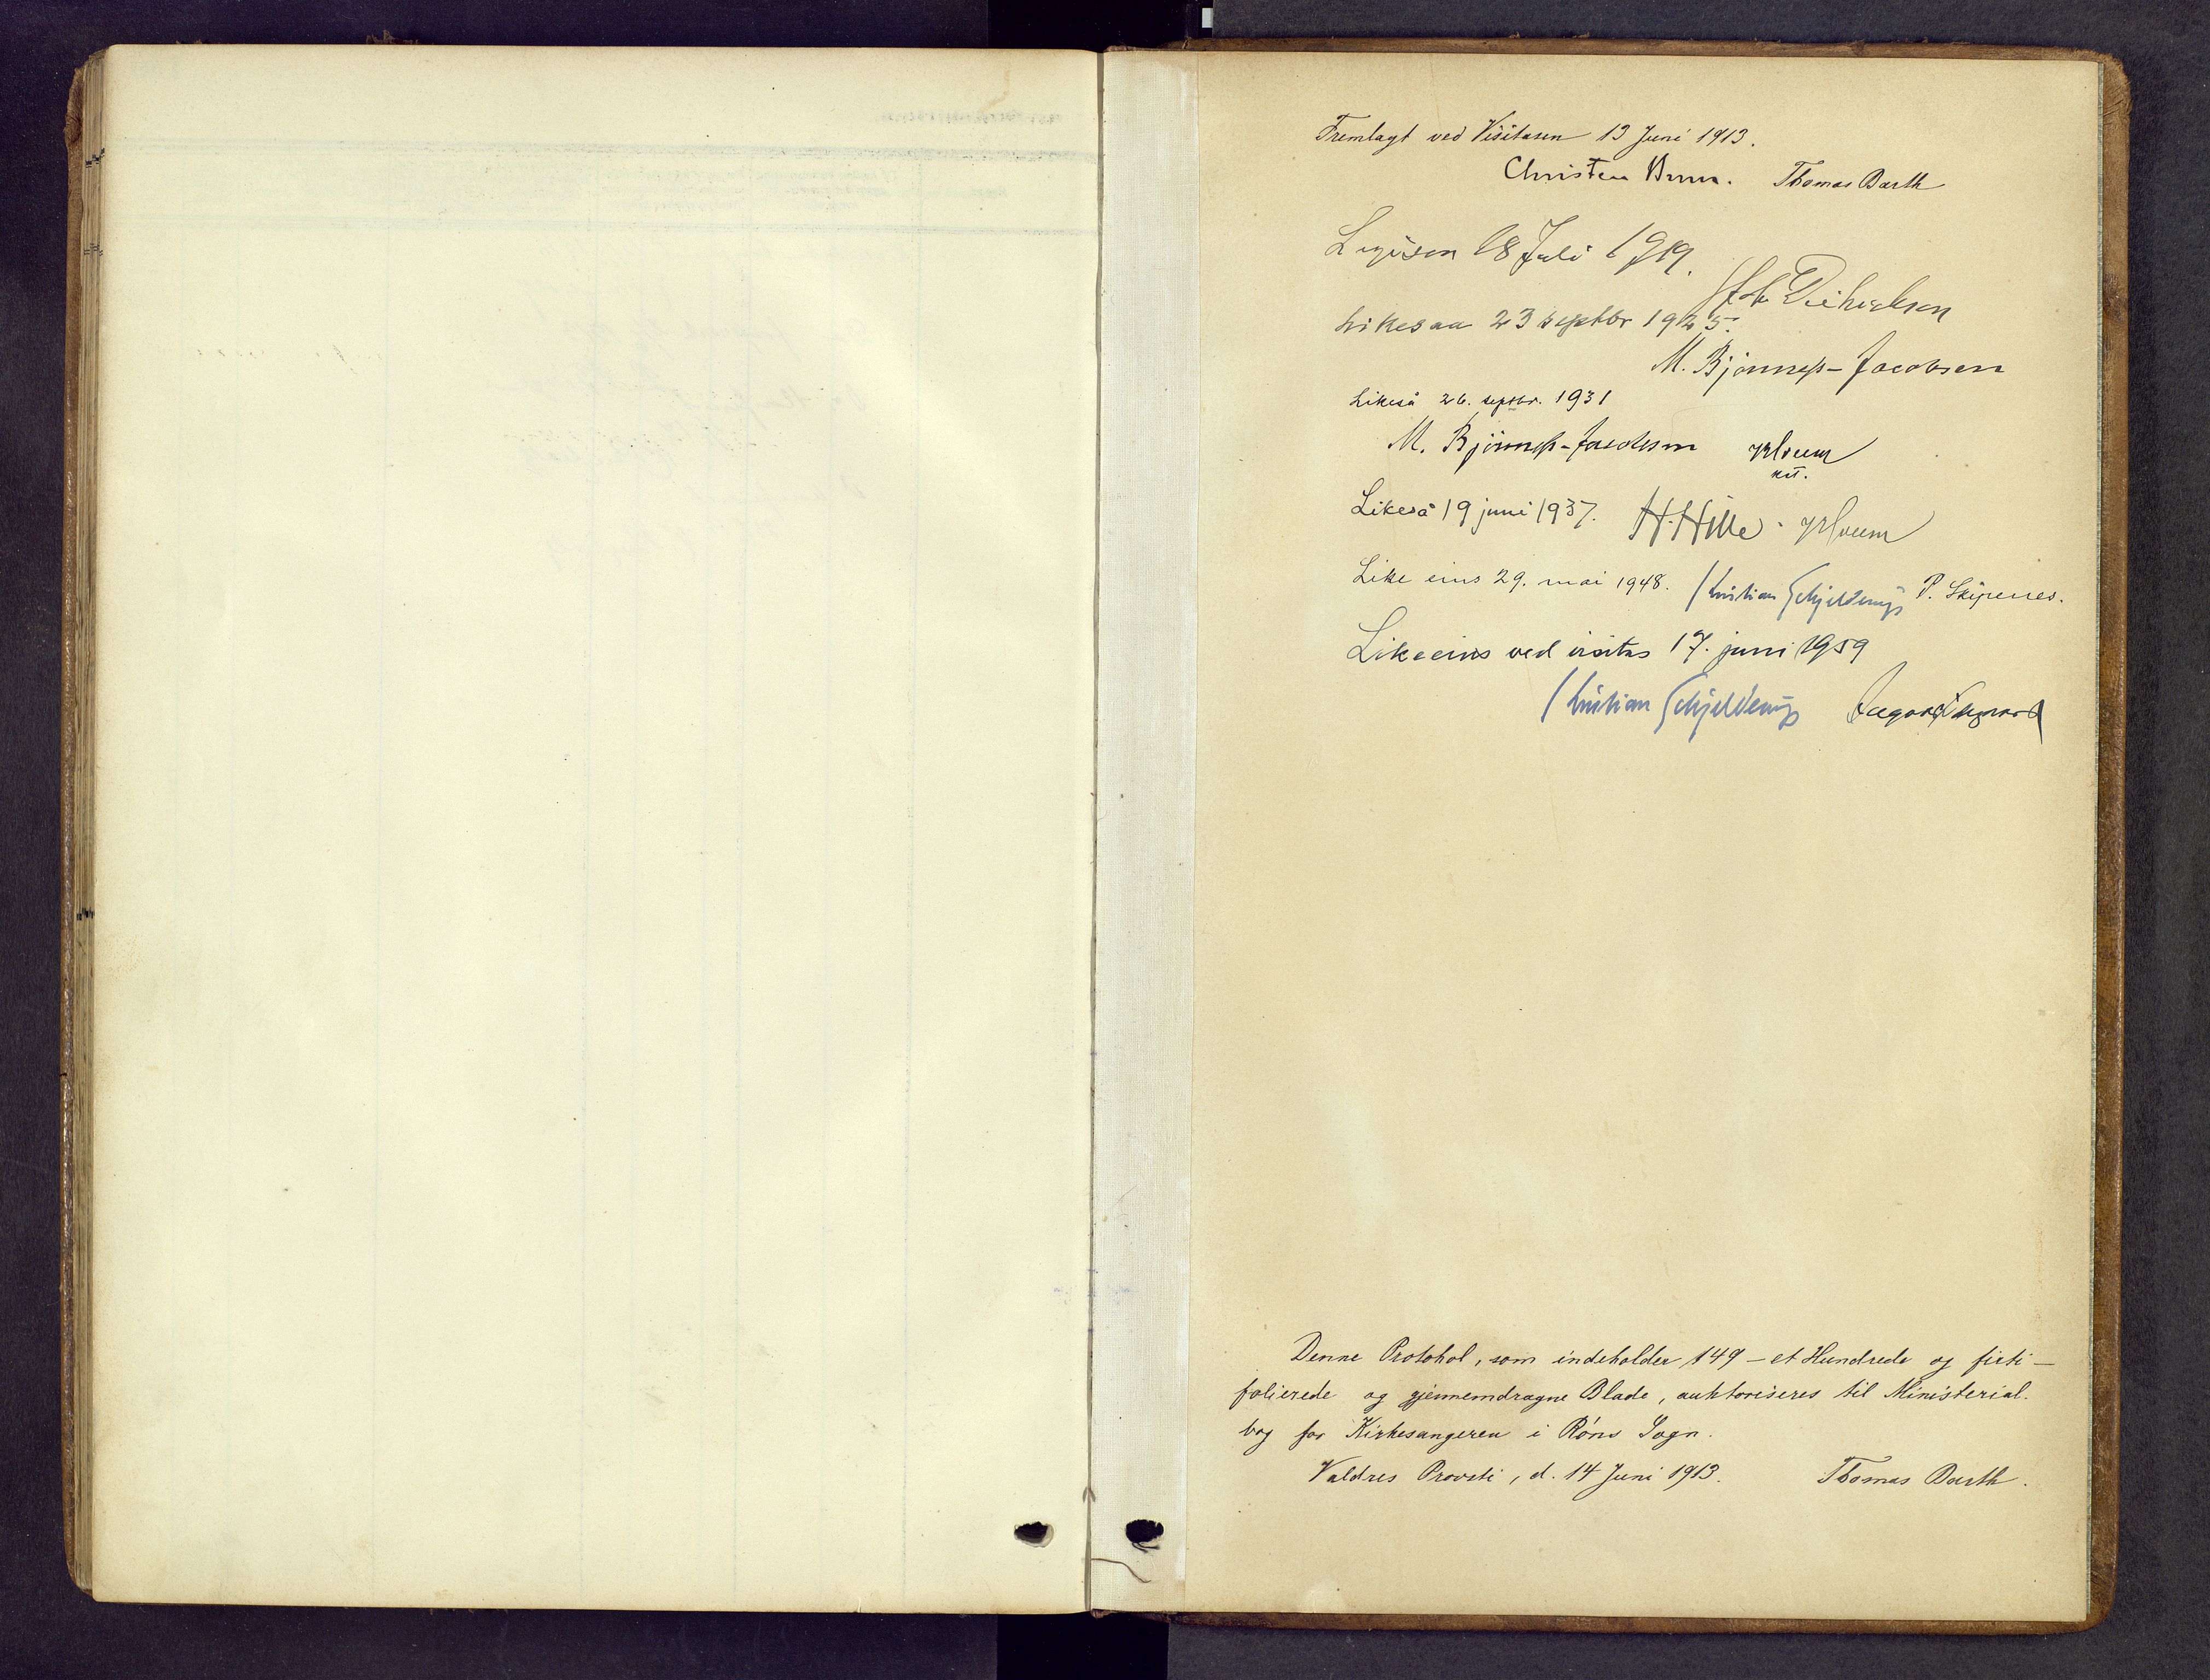 Fremlagt ved Visitasen 13 Juni 1913.
Christen Brun. Thomas Barth
Ligesen 18 Juli 1919.
Likesaa 23 septbr 1925.
M. Bjønness-Jacobsen
Likeså 26. septbr. 1931
M. Bjønness-Jacobsen
Likeså 19 juni 1937. H. Hille.
Like eins 29. mai 1948. Kristian Schjelderup P. Skipenes.
Likeeins ved visitas 17. juni 1959
Kristian Schjelderup
Denne Protokol, som indeholder 149 – et Hundrede og firti –
folierede og gjennemdragne Blade, auktoriseres til Ministerial.
bog for Kirkesangeren i Røns Sogn.
Valdres Provsti, d. 14 Juni 1913. Thomas Barth.